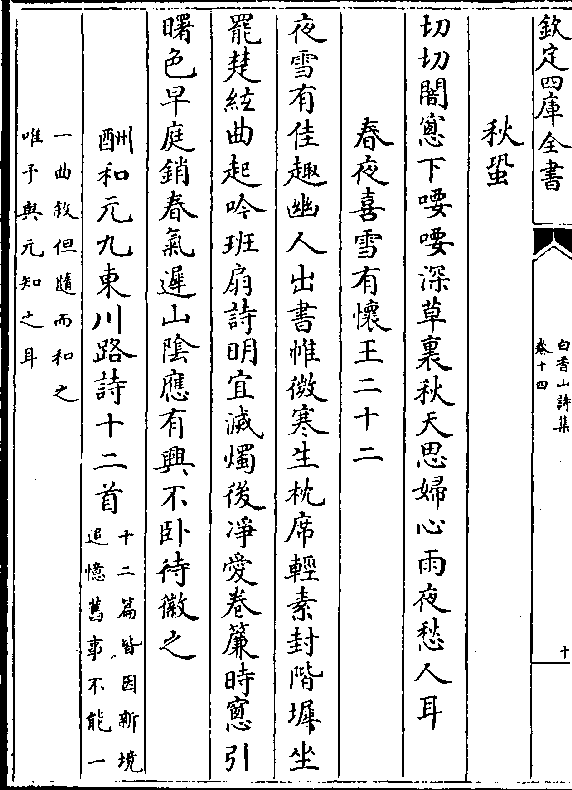 欽定四庫全書
白香山詩集
卷十四
十
秋蛩
切切闇窻下喓喓深草裏秋天思婦心雨夜愁人耳
春夜喜雪有懷王二十二
夜雪有佳趣幽人出書帷微寒生枕席輕素封階墀坐
罷楚絃曲起吟班扇詩明宜滅燭後凈愛卷簾時窻引
曙色早庭銷春氣遲山陰應有興不卧待徽之
酬和元九東川路詩十二首
十二篇皆因新境
追憶舊事不能一
一曲敘但隨而和之
唯予與元知之耳